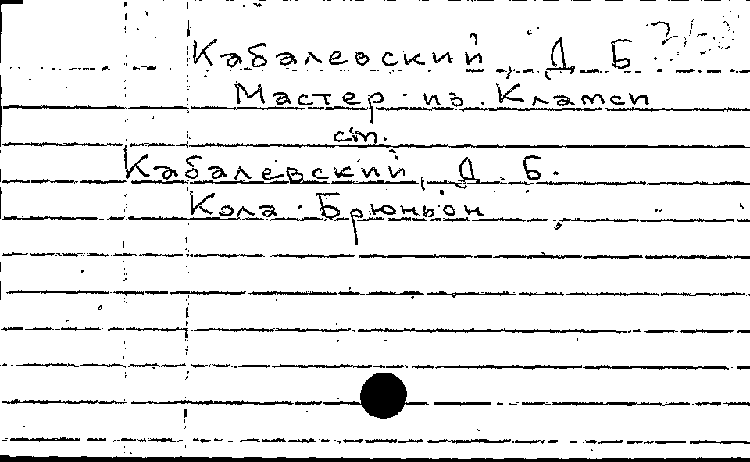 Кабалевский, Д Б
Мастер из Кламси
см.
Кабалевский, Д. Б.
Кола Брюньон